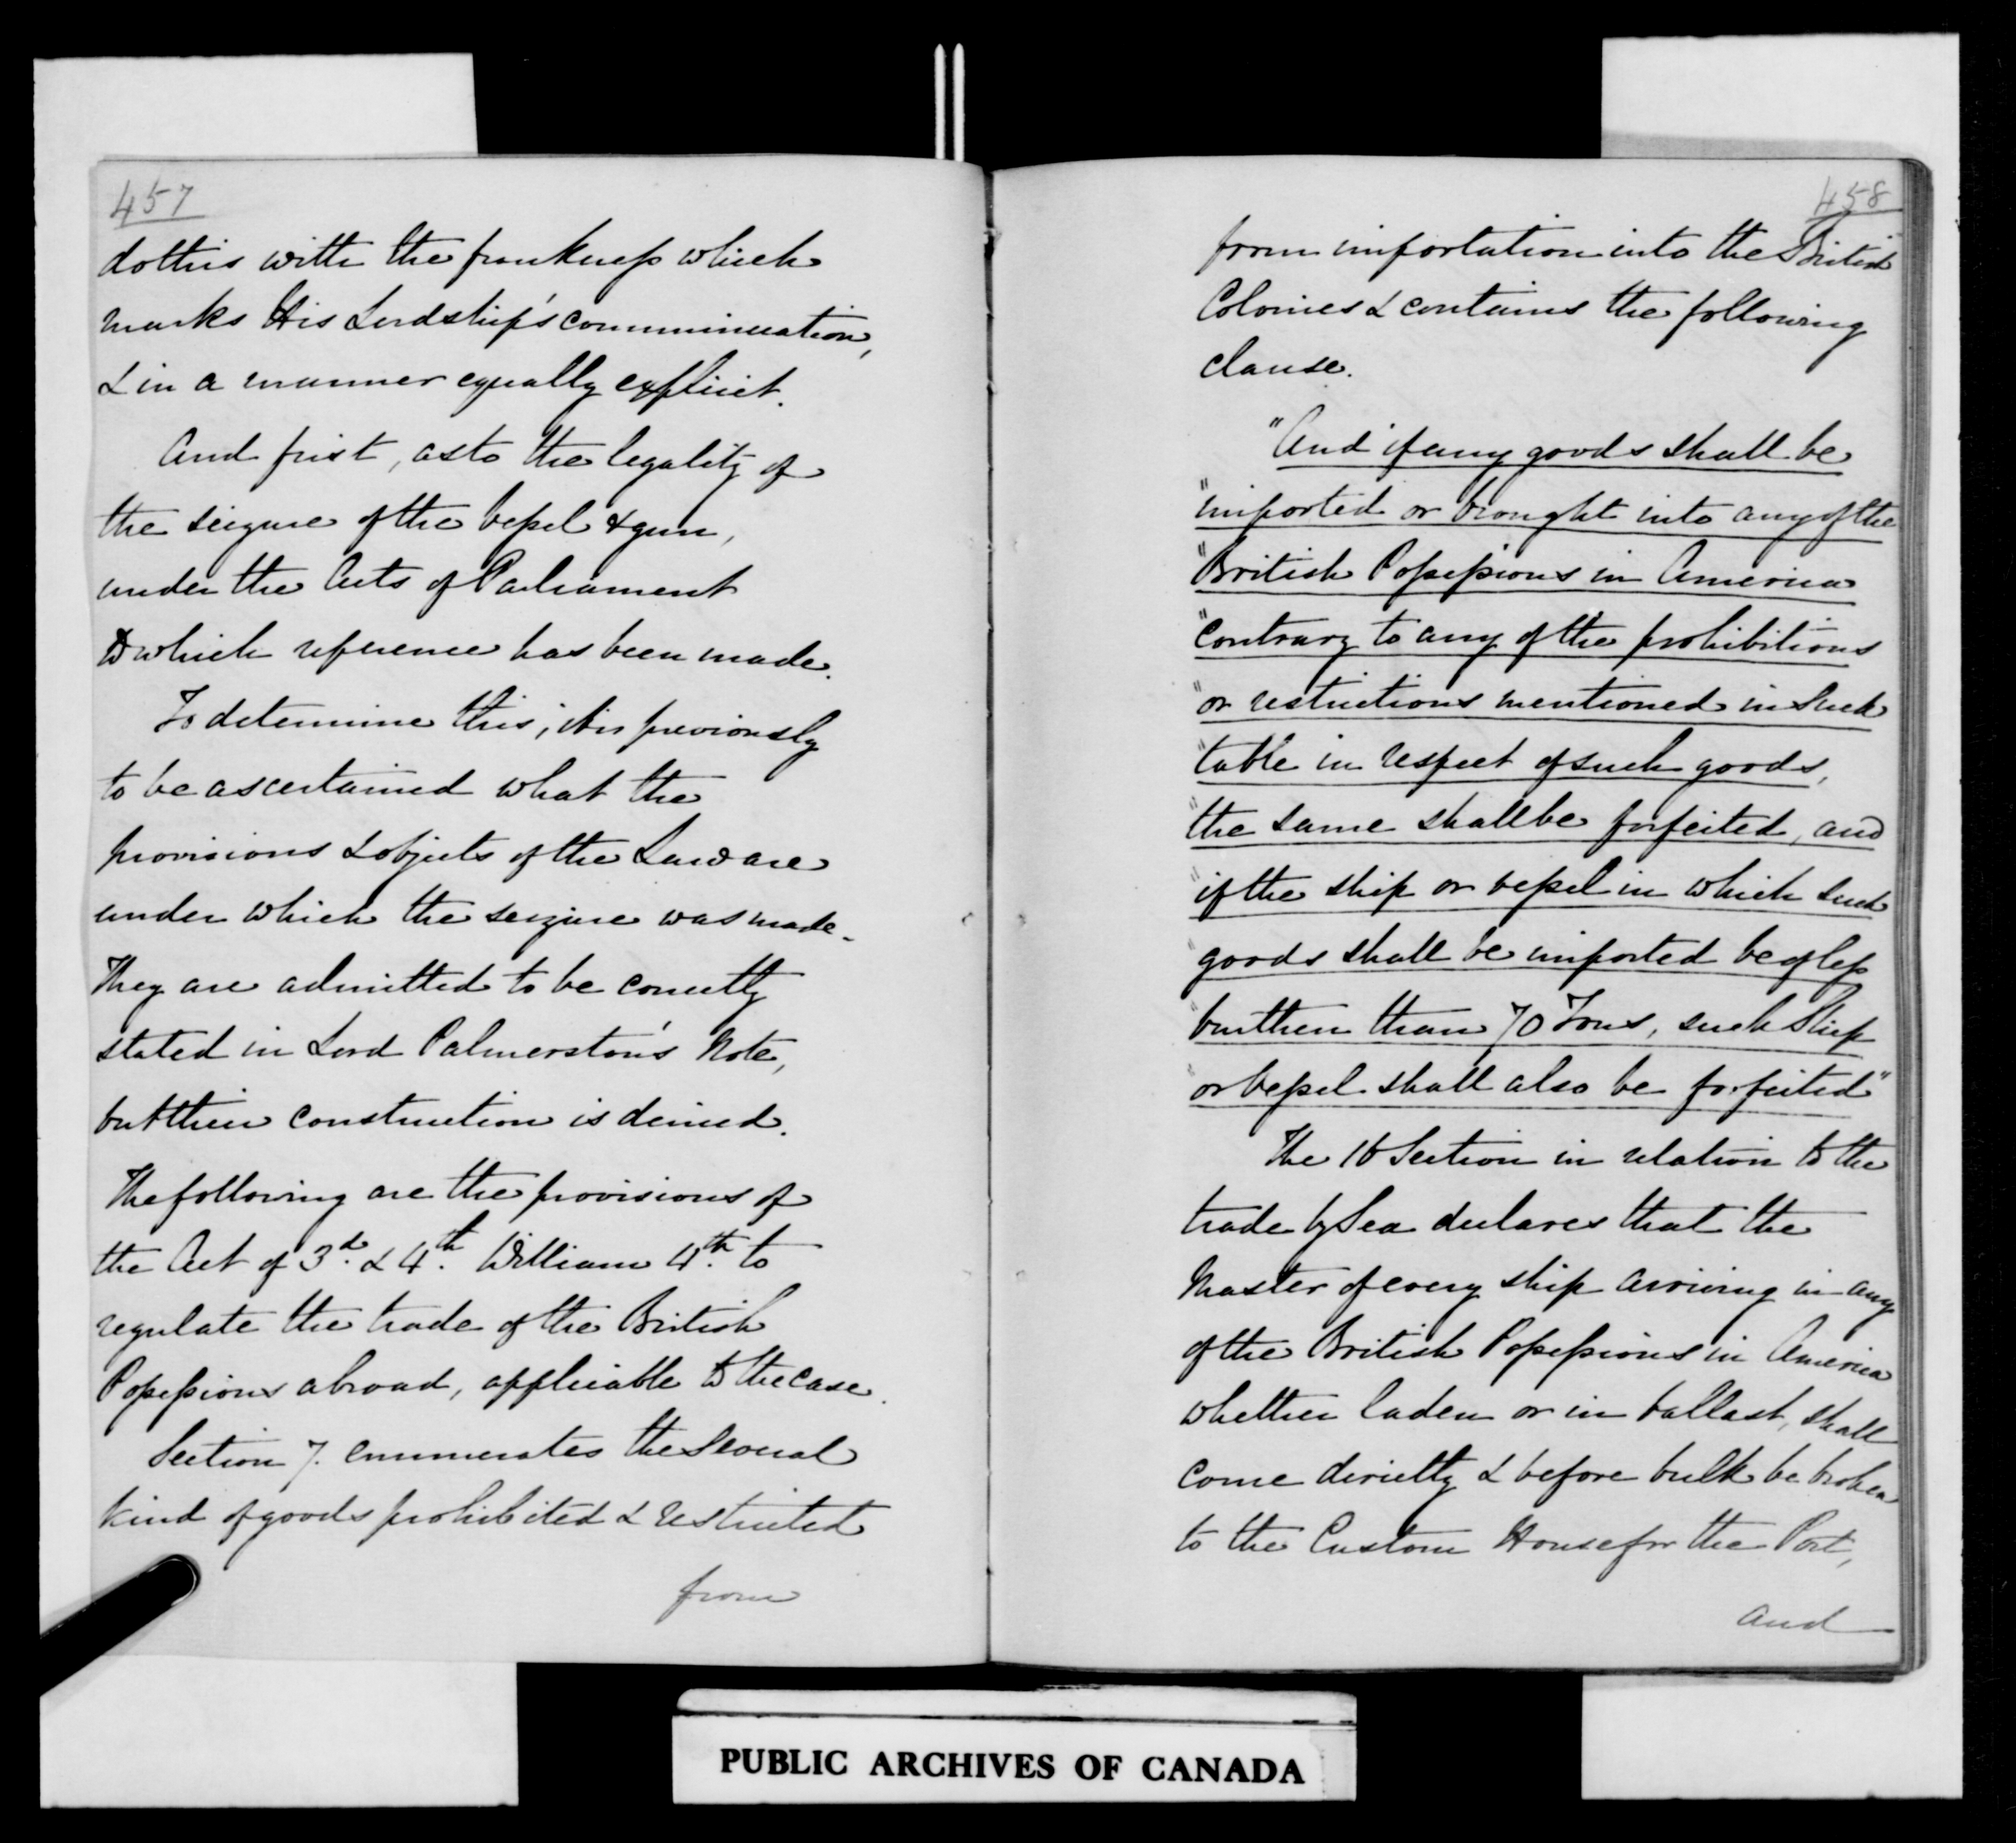 457
do this with the frankness which
marks His Lordship's communication,
& in a manner equally explicit.
And first, as to the legality of
the seizure of the vessel & gun,
under the Acts of Parliament
to which reference has been made.
To determine this, it is previously
to be ascertained what the
provisions & objects of the Law are
under which the seizure was made.
They are admitted to be correctly
stated in Lord Palmerston's Note,
but their construction is denied.
The following are the provisions of
the Act of 3d. & 4th. William 4th. to
regulate the trade of the British
Possessions abroad, applicable to the case.
Section 7. enumerates the several
kind of goods prohibited & restricted
from
458
from importation into the British
Colonies & contains the following
clause.
"And if any goods shall be
"imported or brought into any of the
"British Possessions in America
"contrary to any of the prohibitions
"or restrictions mentioned in such
"table in respect of such goods,
"the same shall be forfeited, and
"if the ship or vessel in which such
"goods shall be imported be of less
"burthen than 70 Tons, such Ship
"or vessel shall also be forfeited"
The 16 Section in relation to the
trade by Sea declares that the
Master of every ship arriving in any
of the British Possessions in America
whether laden or in ballast, shall
come directly & before bulk be broken
to the Custom House for the Port,
and
PUBLIC ARCHIVES OF CANADA